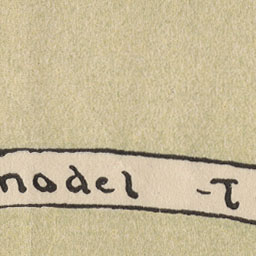 model -T